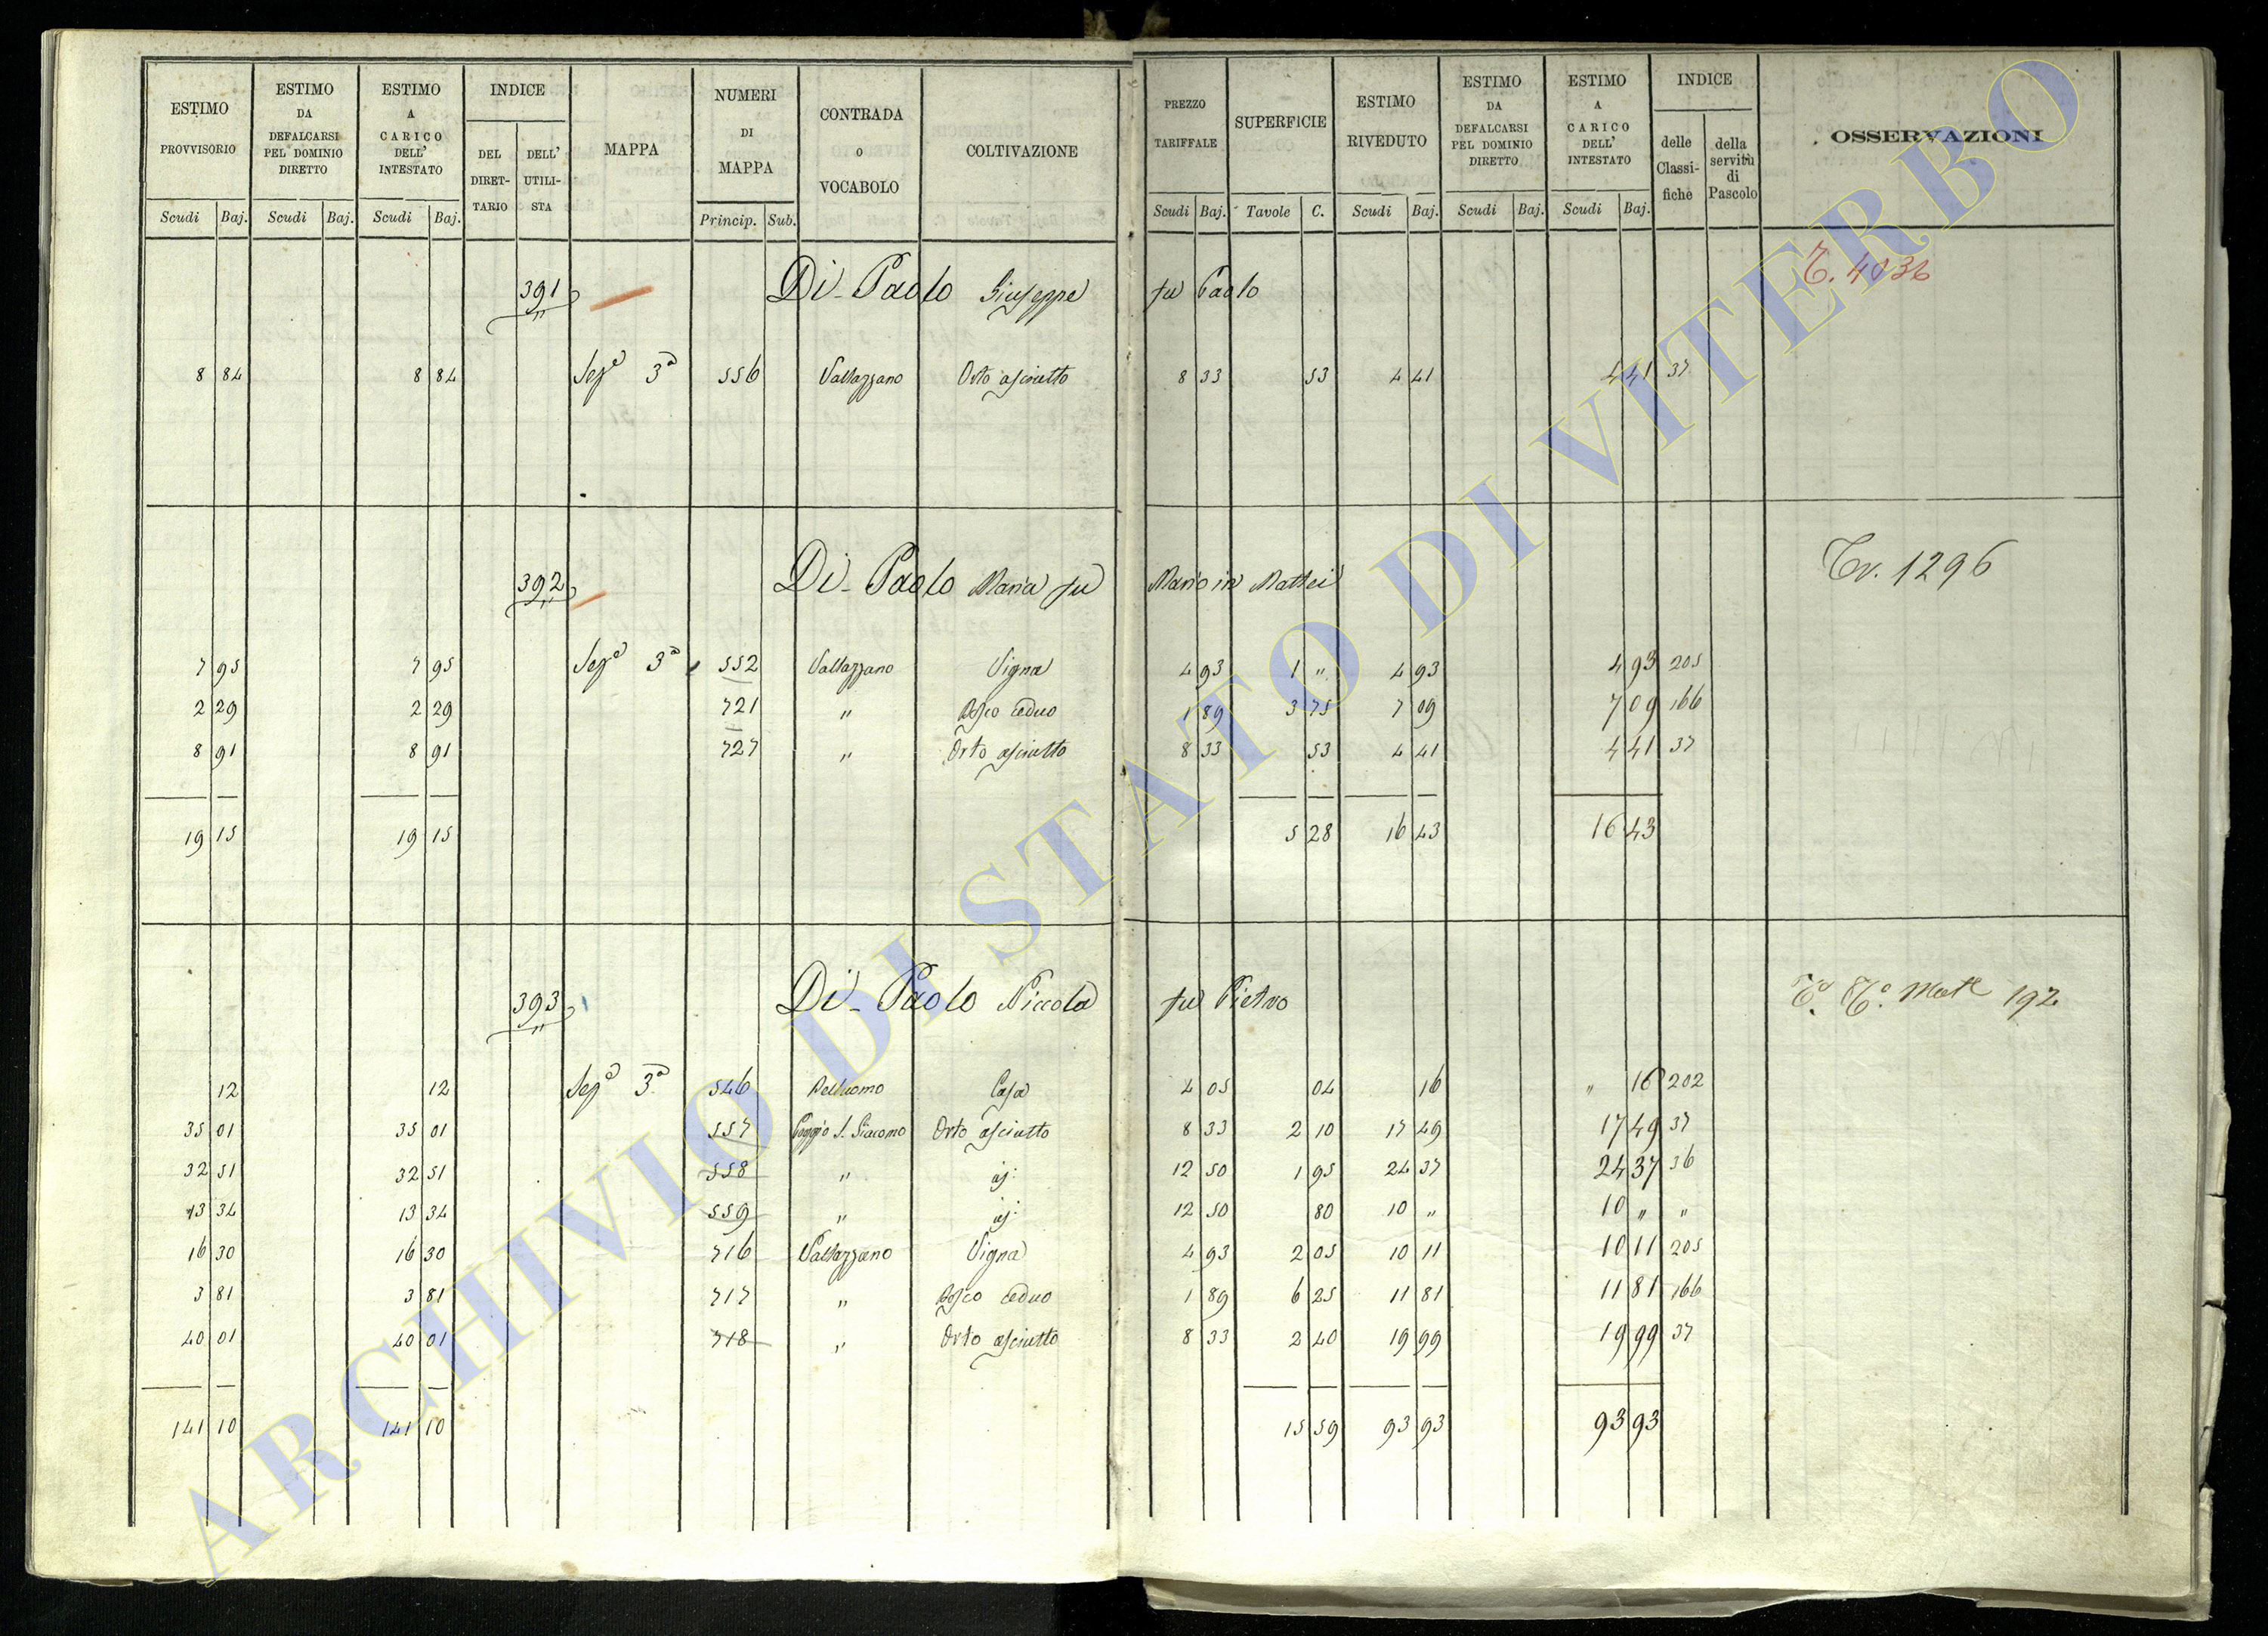 ESTIMO PROVVISORIO | ESTIMO DA DEFALCARSI PEL DOMINIO DIRETTO | ESTIMO A CARICO DELL' INTESTATO | INDICE | MAPPA | NUMERI DI MAPPA | CONTRADA O VOCABOLO | COLTIVAZIONE | PREZZO TARIFFALE | SUPERFICIE | ESTIMO RIVEDUTO | ESTIMO DA DEFALCARSI PEL DOMINIO DIRETTO | ESTIMO A CARICO DELL' INTESTATO | INDICE | OSSERVAZIONI
DEL DIRETTARIO | DELL' UTILISTA | delle Classifiche | della servitù di Pascolo
Scudi Baj. | Scudi Baj. | Scudi Baj. | Princip. Sub. | Scudi Baj. | Tavole C. | Scudi Baj. | Scudi Baj. | Scudi Baj.
391 Di Paolo Giuseppe fu Paolo T. 4036
8 84 8 84 Sez.a 3a 556 Vallazzano Orto asciutto 8 33 53 4 41 4 41 37
392 Di Paolo Maria fu Mario in Mattei Tr. 1296
7 95 7 95 Sez.a 3a 552 Vallazzano Vigna 4 93 1 " 4 93 4 93 205
2 29 2 29 721 " Bosco ceduo 1 89 3 75 7 09 7 09 166
8 91 8 91 727 " Orto asciutto 8 33 53 4 41 4 41 37
19 15 19 15 5 28 16 43 16 43
393 Di Paolo Niccola fu Pietro 192
12 12 Sez.a 3a 546 Casa 4 05 04 16 " 16 202
35 01 35 01 557 Poggio S. Giacomo Orto asciutto 8 33 2 10 17 49 17 49 37
32 51 32 51 558 " 12 50 1 95 24 37 24 37 36
13 34 13 34 559 " 12 50 80 10 " 10 " "
16 30 16 30 716 Vallazzano Vigna 4 93 2 05 10 11 10 11 205
3 81 3 81 717 " Bosco ceduo 1 89 6 25 11 81 11 81 166
40 01 40 01 718 " Orto asciutto 8 33 2 40 19 99 19 99 37
141 10 141 10 15 59 93 93 93 93
ARCHIVIO DI STATO DI VITERBO